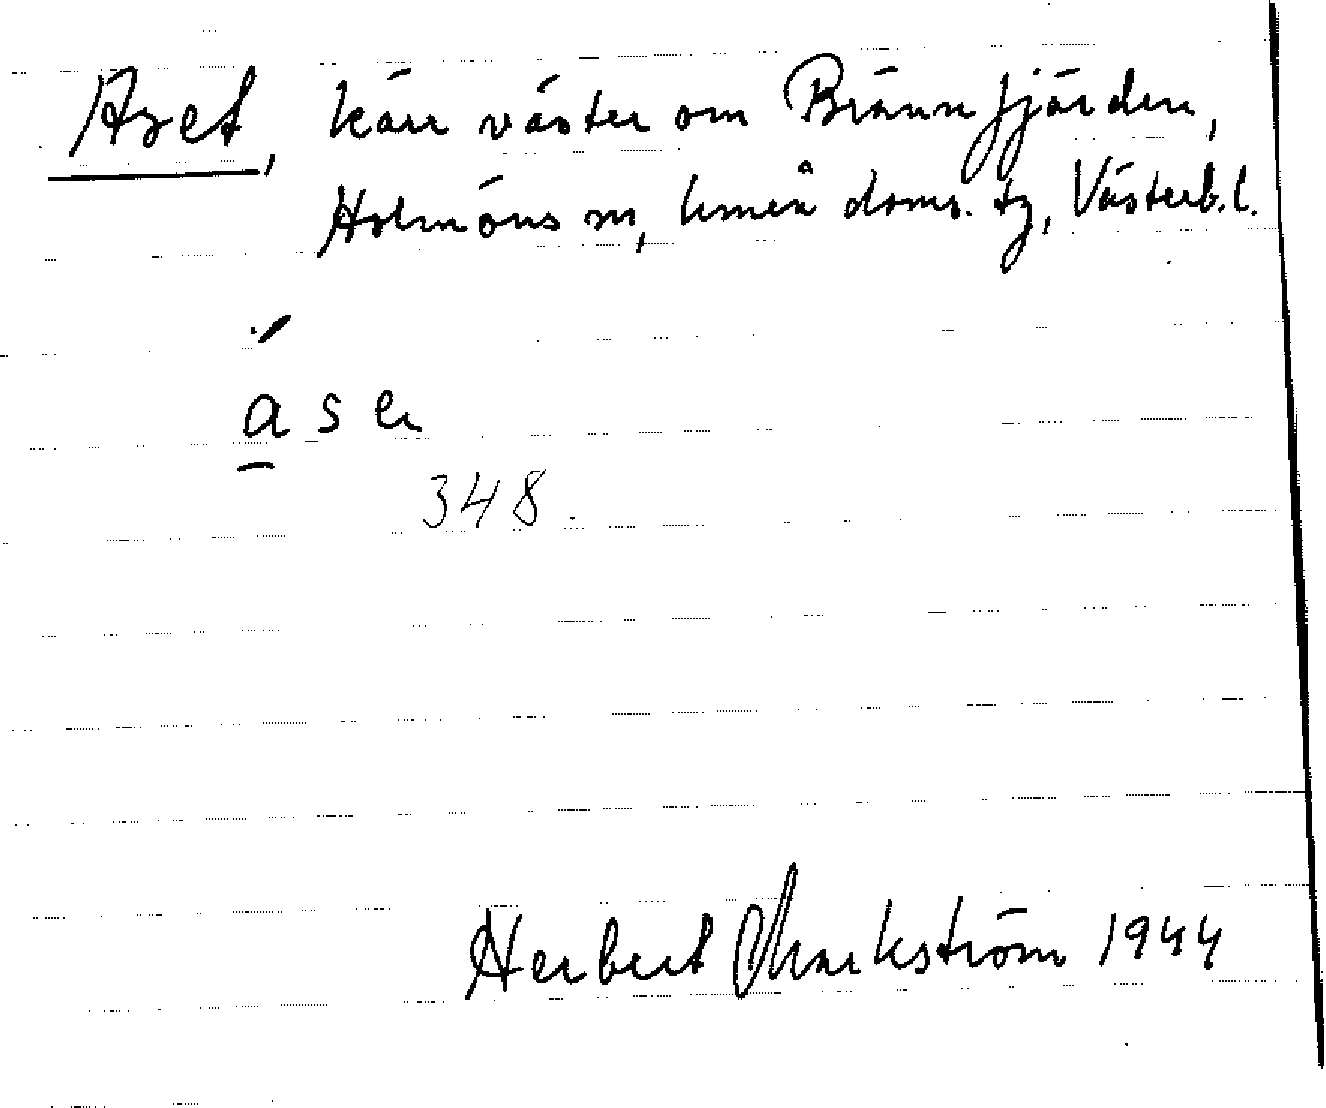 Axet, kärr väster om Brännfjärden,
Holmöns sn, Umeå doms. tg, Västerb. l.
ase
348.
Herbert Markström 1944